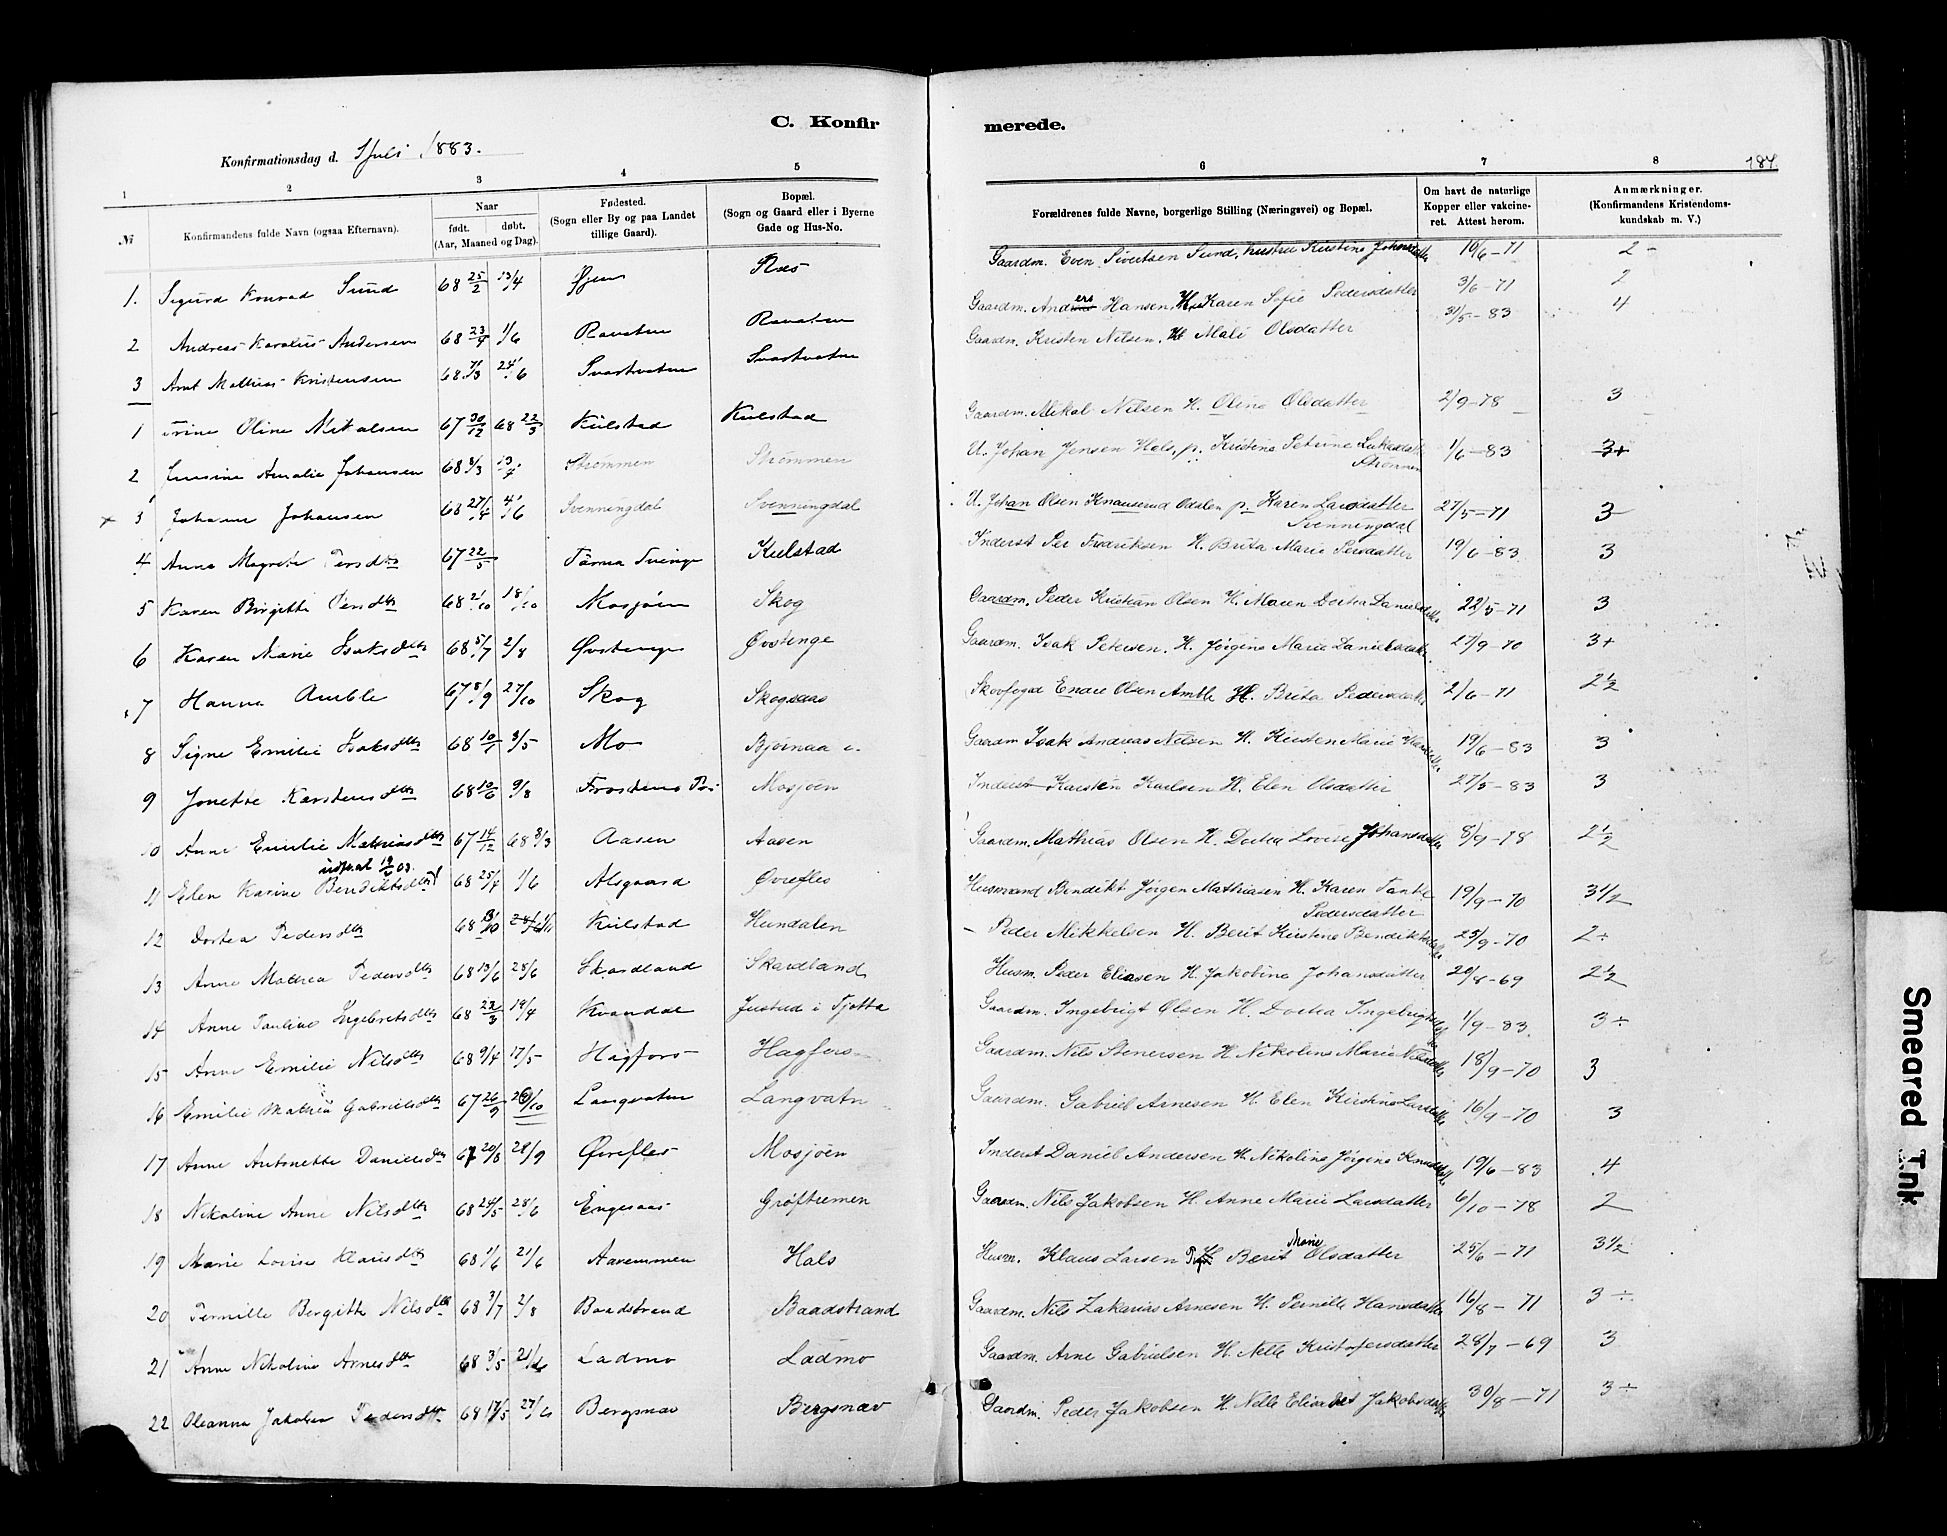 C. Konfirmerede.
187.
Konfirmationsdag d. 1 Juli 1883.
1 2 3 4 5 6 7 8
No
Konfirmandens fulde Navn (ogsaa Efternavn).
Naar
født. døbt.
(Aar, Maaned og Dag).
Fødested.
(Sogn eller By og paa Landet
tillige Gaard).
Bopæl.
(Sogn og Gaard eller i Byerne
Gade og Hus-No.
Forældrenes fulde Navne, borgerlige Stilling (Næringsvei) og Bopæl.
Om havt de naturlige
Kopper eller vakcine-
ret. Attest herom.
Anmærkninger.
(Konfirmandens Kristendoms-
kundskab m. V.)
1. Sigurd Konrad Sund 68 25/2 13/4 Gaardm. Even Sivertsen Sund, Hustru Kirstine Johansdatter 10/6-71 2-
2 Andreas Karolius Andersen 68 23/4 1/6 Ravatnn Ravatnn Gaardm. Anders Hansen, H. Karen Sofie Pedersdatter 3/6-71 2
3 Arnt Mathias Kristensen 68 7/3 24/6 Svartvatnn Svartvatnn Gaardm. Kristen Nilsen, H. Mali Olsdatter 31/5-83 4
1 Trine Oline Mikalsen 67 30/12 68 22/3 Kulstad Kulstad Gaardm. Mikal Nilsen H. Oline Olsdatter 2/9-78 3
2 Jensine Amalie Johansen 68 8/3 13/4 Strømmen Strømmen U. Johan Jensen Hals, p. Kristine Petrine Lukasdatter Strømmen 1/6-83 3+
3 Johanne Johansen 68 27/4 4/6 Svenningdal Svenningdal U. Johan Olsen Knauserud Odalen p. Karen Larsdatter Svenningdal 27/5-71 3
4 Anna Magrete Persdtr 67 22/5 Kulstad Inderst Per Fredriksen H. Brita Marie Persdatter 19/6-83 3
5 Karen Birgitte Persdtr 68 2/10 18/10 Mosjøen Skog Gaardm. Peder Kristian Olsen H. Maren Dortea Danielsdatter 22/5-71 3
6 Karen Marie Isaksdtr 68 5/7 2/8 Øvstenge Øvstenge Gaardm. Isak Petersen. H. Jørgine Marie Danielsdatter 27/9-70 3+
7 Hanna Amble 67 8/9 27/10 Skog Skogsaas Skovfoged Endre Olsen Amble H. Brita Pedersdatter 2/6-71 2½
8 Signe Emilie Isaksdtr 68 10/1 3/5 Mo Bjørnaa Gaardm Isak Andreas Nilsen H. Kirsten Marie 19/6-83 3
9 Jonette Karstensdtr 68 10/6 9/8 Mosjøen Inderst Karsten Karlsen H. Elen Olsdatter 27/5-83 3
10 Anne Emilie Mathiasdtr 67 14/12 68 8/3 Aasen Aasen Gaardm. Mathias Olsen H. Dortea Lovise Johansdatter 8/9-78 2½
udfl. att. 19/6 03.
11 Elen Karine Bendiktsdtr 68 25/4 1/6 Alsgaard Øvrefles Husmand Bendikt Jørgen Mathiasen H. Karen Pedersdatter 19/9-70 3½
12 Dortea Pedersdtr 68 Kulstad Hundalen Peder Mikkelsen H. Berit Kirstine Bendiktsdatter 25/9-70 2÷
13 Anne Mathea Pedersdtr 68 13/6 28/6 Skardland Skardland Husm. Peder Eliasen H. Jakobine Johansdatter 20/8-69 2½
14 Anne Pauline Ingebretsdtr 68 22/3 19/4 Kvandal Justad i Tjøtta Gaardm. Ingebrigt Olsen H. Dortea Ingebrigtsdatter 1/9-83 3÷
15 Anne Emilie Nilsdtr 68 9/4 17/5 Hagfors Hagfors Gaardm. Nils Stenersen H. Nikoline Marie Nilsdatter 18/9-70 3
16 Emilie Mathea Gabrielsdtr 67 26/9 20/10 Langvatnn Langvatn Gaardm. Gabriel Arnesen H. Elen Kirstine Larsdatter 16/9-70 3
17 Anne Antonette Danielsdtr 67 20/8 28/9 Øvrefles Mosjøen Inderst Daniel Andersen H. Nikoline Jørgine Knudsdatter 19/6-83 4
18 Nikoline Anne Nilsdtr 68 24/5 28/6 Engesaas Grøftremen Gaardm. Nils Jakobsen H. Anne Marie Larsdatter 6/10-78 2
19 Marie Lovise Klausdtr 68 1/6 21/6 Aaremmen Hals Husm. Klaus Larsen H Berit Marie Olsdatter 25/6-71 3½
20 Pernille Bergitte Nilsdtr 68 3/7 2/8 Baadstrand Baadstrand Gaardm. Nils Zakarias Arnesen H. Pernille Hansdatter 16/8-71 3÷
21 Anne Nikoline Arnesdtr 68 3/5 21/6 Ladmo Ladmo Gaardm. Arne Gabrielsen H. Nelle Kristofersdatter 28/7-69 3
22 Oleanna Jakobea Pedersdtr 68 17/5 27/6 Bergsnæv Bergsnæv Gaardm. Peder Jakobsen H. Nelle Elisabet Jakobsdatter 30/8-71 3÷
Smeared Ink